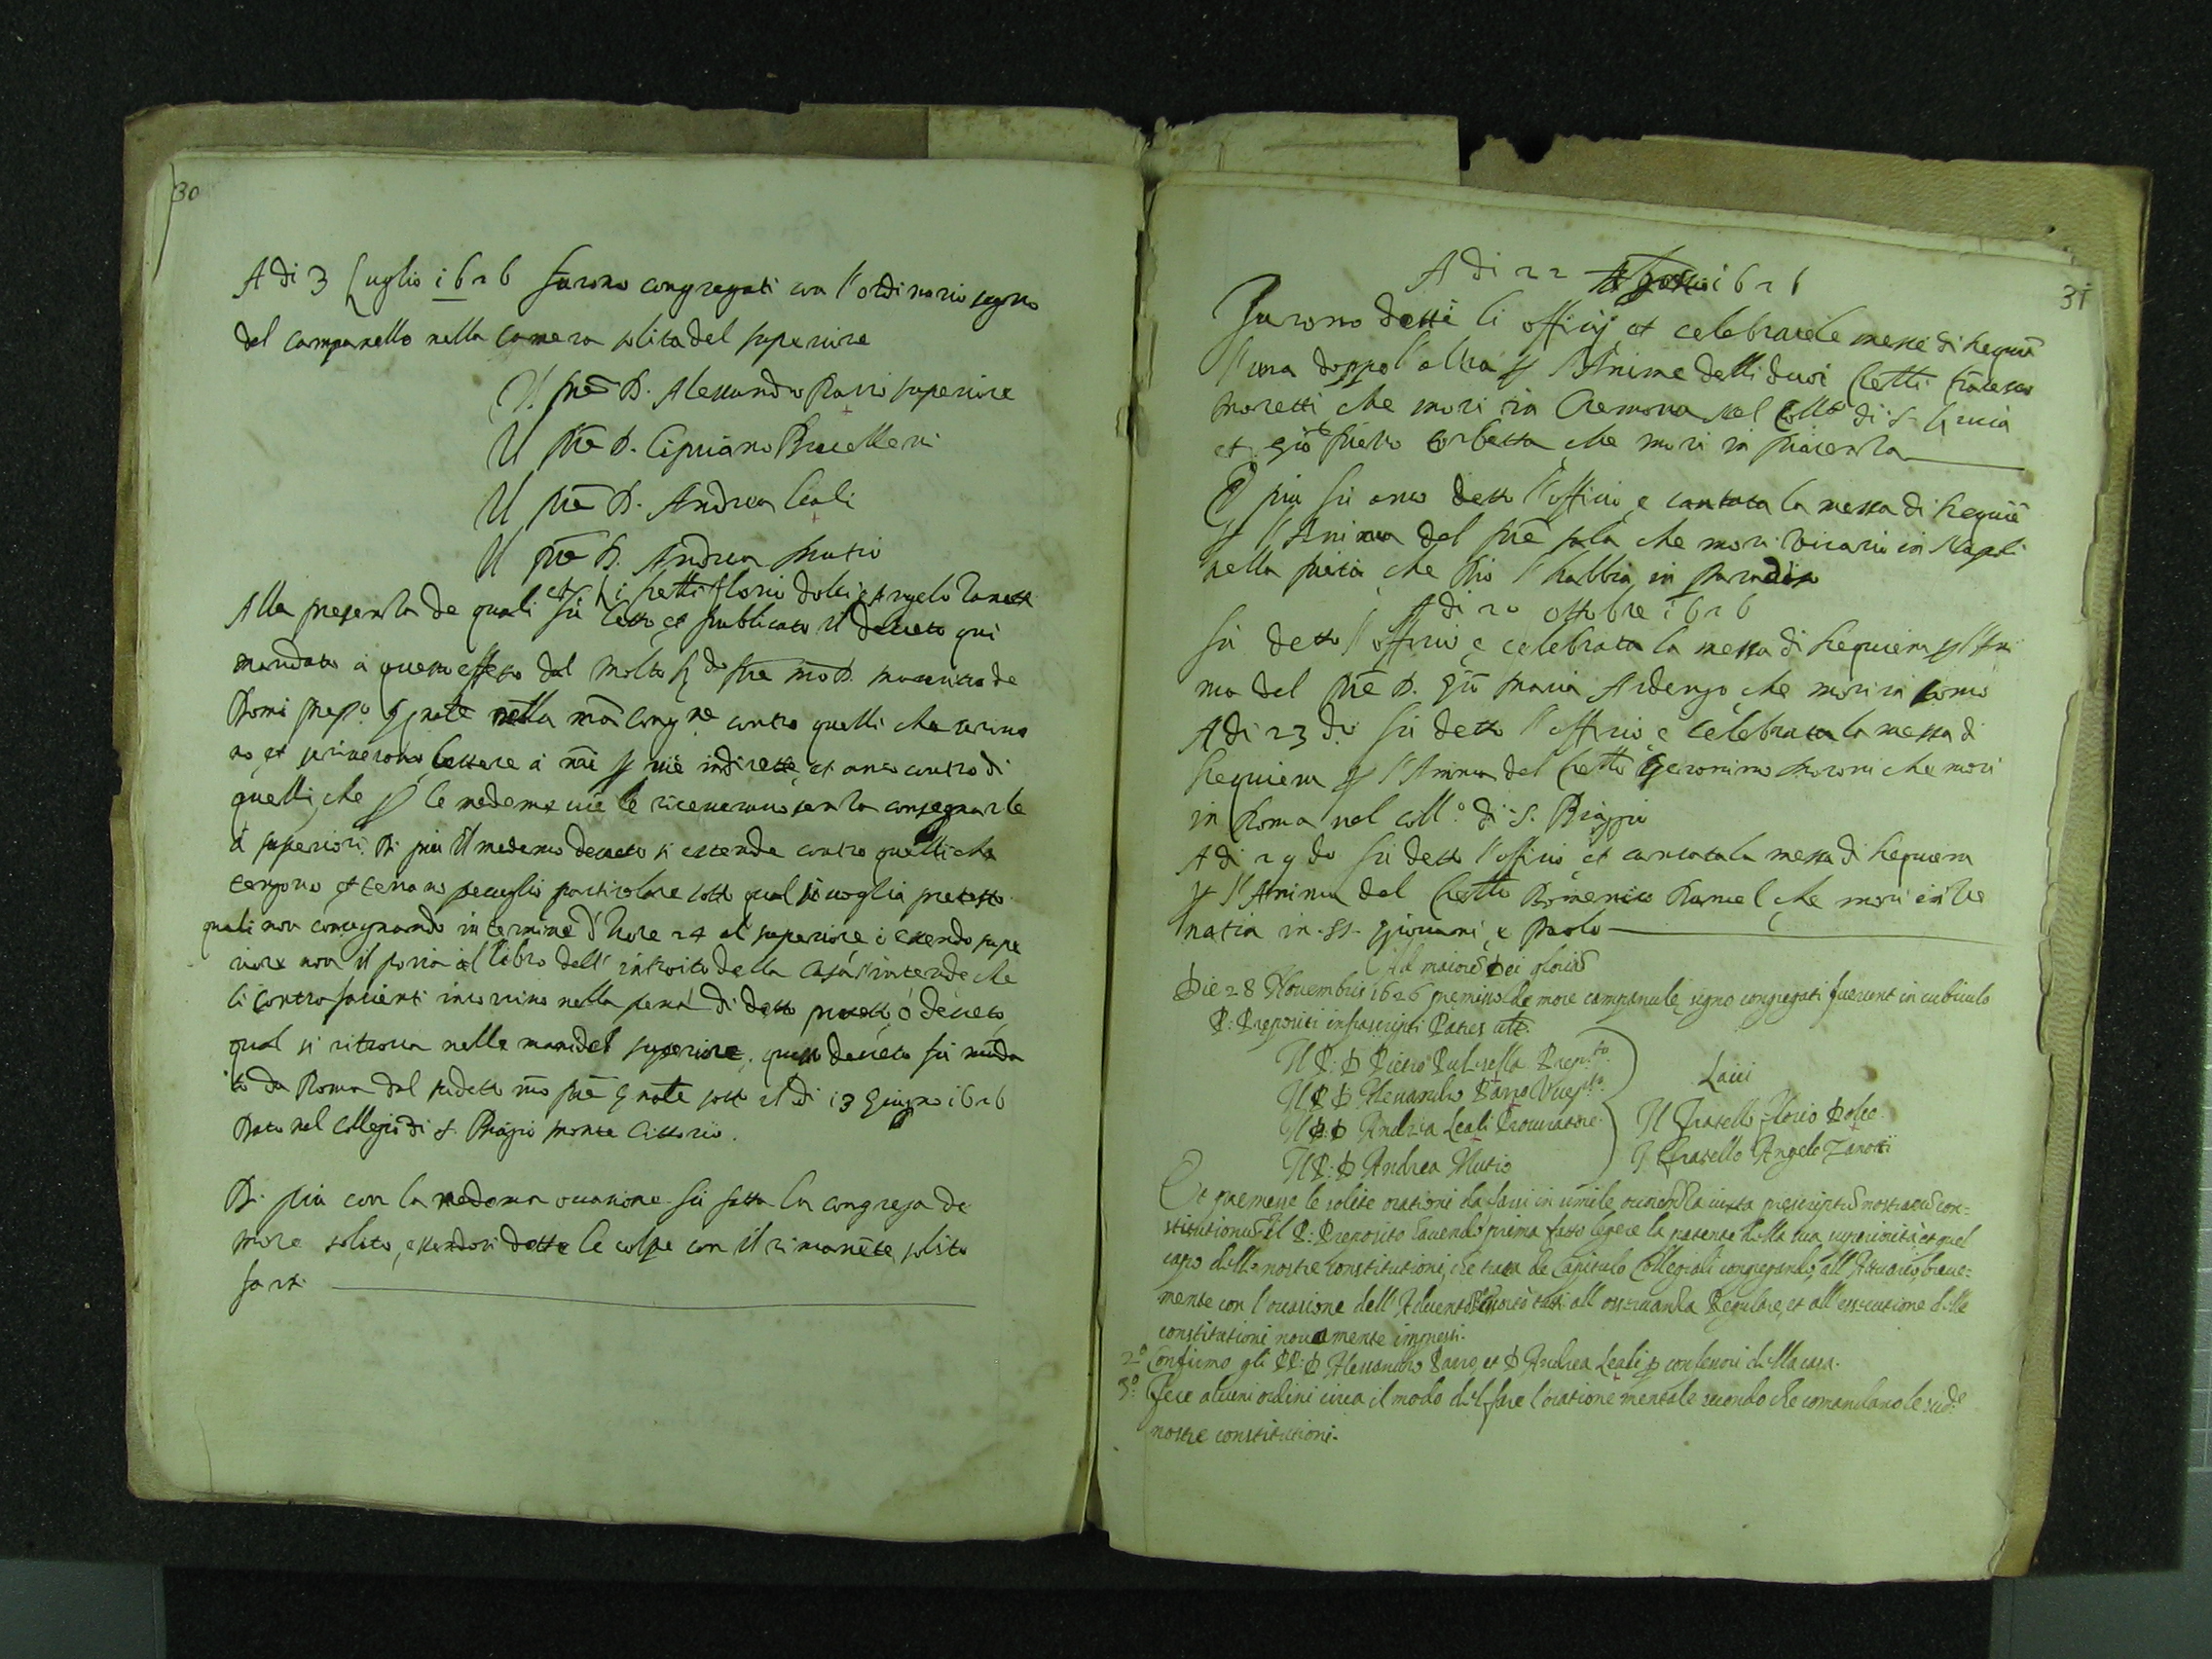 30
A di 3 Luglio 1626 furono congregati con l'ordinario segno
del campanello nella camera solita del superiore
Il pre D. Alessandro Parro superiore
Il pre D. Cipriano Brucelleni
Il pre D. Andrea Leali
Il pre D. Andrea Mutio
et li fretti Florio Dolci e Angelo Zanotti
Alla presenza de quali fù letto et publicato il decreto qui
mandato à questo effetto dal Molto Rdo Pre nro D. Mauritio de
Domi prep.o gnale nella nra congne contro quelli che scrivo
no et scriverono lettere à nri p vie indirette et anco contro di
quelli che p le medeme vie le riceverano senza consegnarle
à superiori. Di più il medemo decreto si estende contro quelli che
tengono et terrano peculio particolare sotto qual si voglia pretesto
quali non consegnando in termine d'hore 24 al superiore ò essendo supe
riore non il ponia al libro dell'introito della Casa s'intende che
li contrafacienti incorrino nella pena di detto ò decreto
qual si ritrova nelle mani del superiore, questo decreto fù mãda
to da Roma dal sudetto nro pre gnale sotto il di 13 Giugno 1626
Dato nel Collegio di S. Biagio Monte Cittorio.
Di più con la medema occasione fù fatta la congrega de
more solito, essendosi dette le colpe con il rimanẽte solito
farsi.
31
A di 22 1626
Furono detti li officij et celebrate le messe di Requiẽ
l'una doppo l'altra p l'Anime delli duoi fretti Frãcesco
Moretti che morì in Cremona nel Collo di S. Lucia
et Gio Pietro Corbetta che morì in Piacenza
E più fù anco detto l'officio e cantata la messa di Requiẽ
p l'Anima del Pre Sala che morì Vicario in Napoli
nella pietà che Dio l'habbia in Paradiso
A di 20 ottobre 1626
fù detto l'officio e celebrata la messa di Requiem p l'Ani
ma del Pre D. Giõ Maria Ardengo che morì in Como
A di 23 do fù detto l'officio e celebrata la messa di
Requiem p l'Anima del fretto Geronimo Moroni che morì
in Roma nel coll.o di S. Biaggio
A di 29 do fù detto l'officio et cantata la messa di Requiem
p l'Anima del fretto Domenico Ramel che morì in Ve
netia in SS. Giovanni e Paolo
Ad maiorẽ Dei gloriã
Die 28 Novembris 1626 premisso de more campanule signo congregati fuerunt in cubiculo
P: Prepositi infrascripti Patres utt.
Il P: D Pietro Prep.to
Il P D: Alessandro Parro Vicep.to
Il P: D Andrea Leali Procuratore
Il P: D Andrea Mutio
Laici
Il Fratello Florio Dolce
Il Fratello Angelo Zanotti
Et premesse le solite orationi da farsi in simile occasione iuxta prescriptũ nostrarũ con=
stitutionũ Il P: Preposito havendo prima fatto legere la patente della sua superiorità et quel
capo delle nostre constitutioni, che trata de Capitulo Collegiali congregando, all'Attuario, breve=
mente con l'occasione dell'Advento essortò tutti all'osservanza Regulare, et all'essecutione delle
constitutioni novamente impressi.
2.o Confirmo gli PP: D Alessandro Parro, et D Andrea Leali p confessori della casa.
3.o Fece alcuni ordini circa il modo del fare l'oratione mentale secondo che comandano le sud.e
nostre constitutioni.